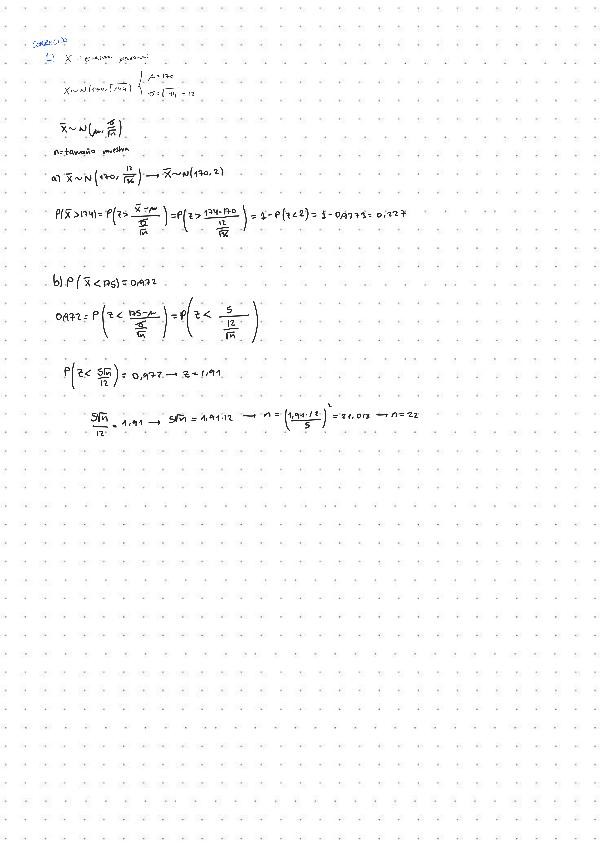 1) X
X~N(170, √144) { μ=170
σ=√144=12
X̄~N(μ, σ/√n)
n=tamaño muestra
a) X̄~N(170, 12/√36) → X̄~N(170,2)
P(X̄>174)=P(Z> (X̄-μ)/(σ/√n))=P(Z> (174-170)/(12/√36))=1-P(Z<2)=1-0,9773=0,227
b) P(X̄<175)=0,972
0,972=P(Z< (175-μ)/(σ/√n))=P(Z< 5/(12/√n))
P(Z< 5√n/12)=0,972 → Z=1,91
5√n/12=1,91 → 5√n=1,91·12 → n=(1,91·12/5)²=21,013 → n=22